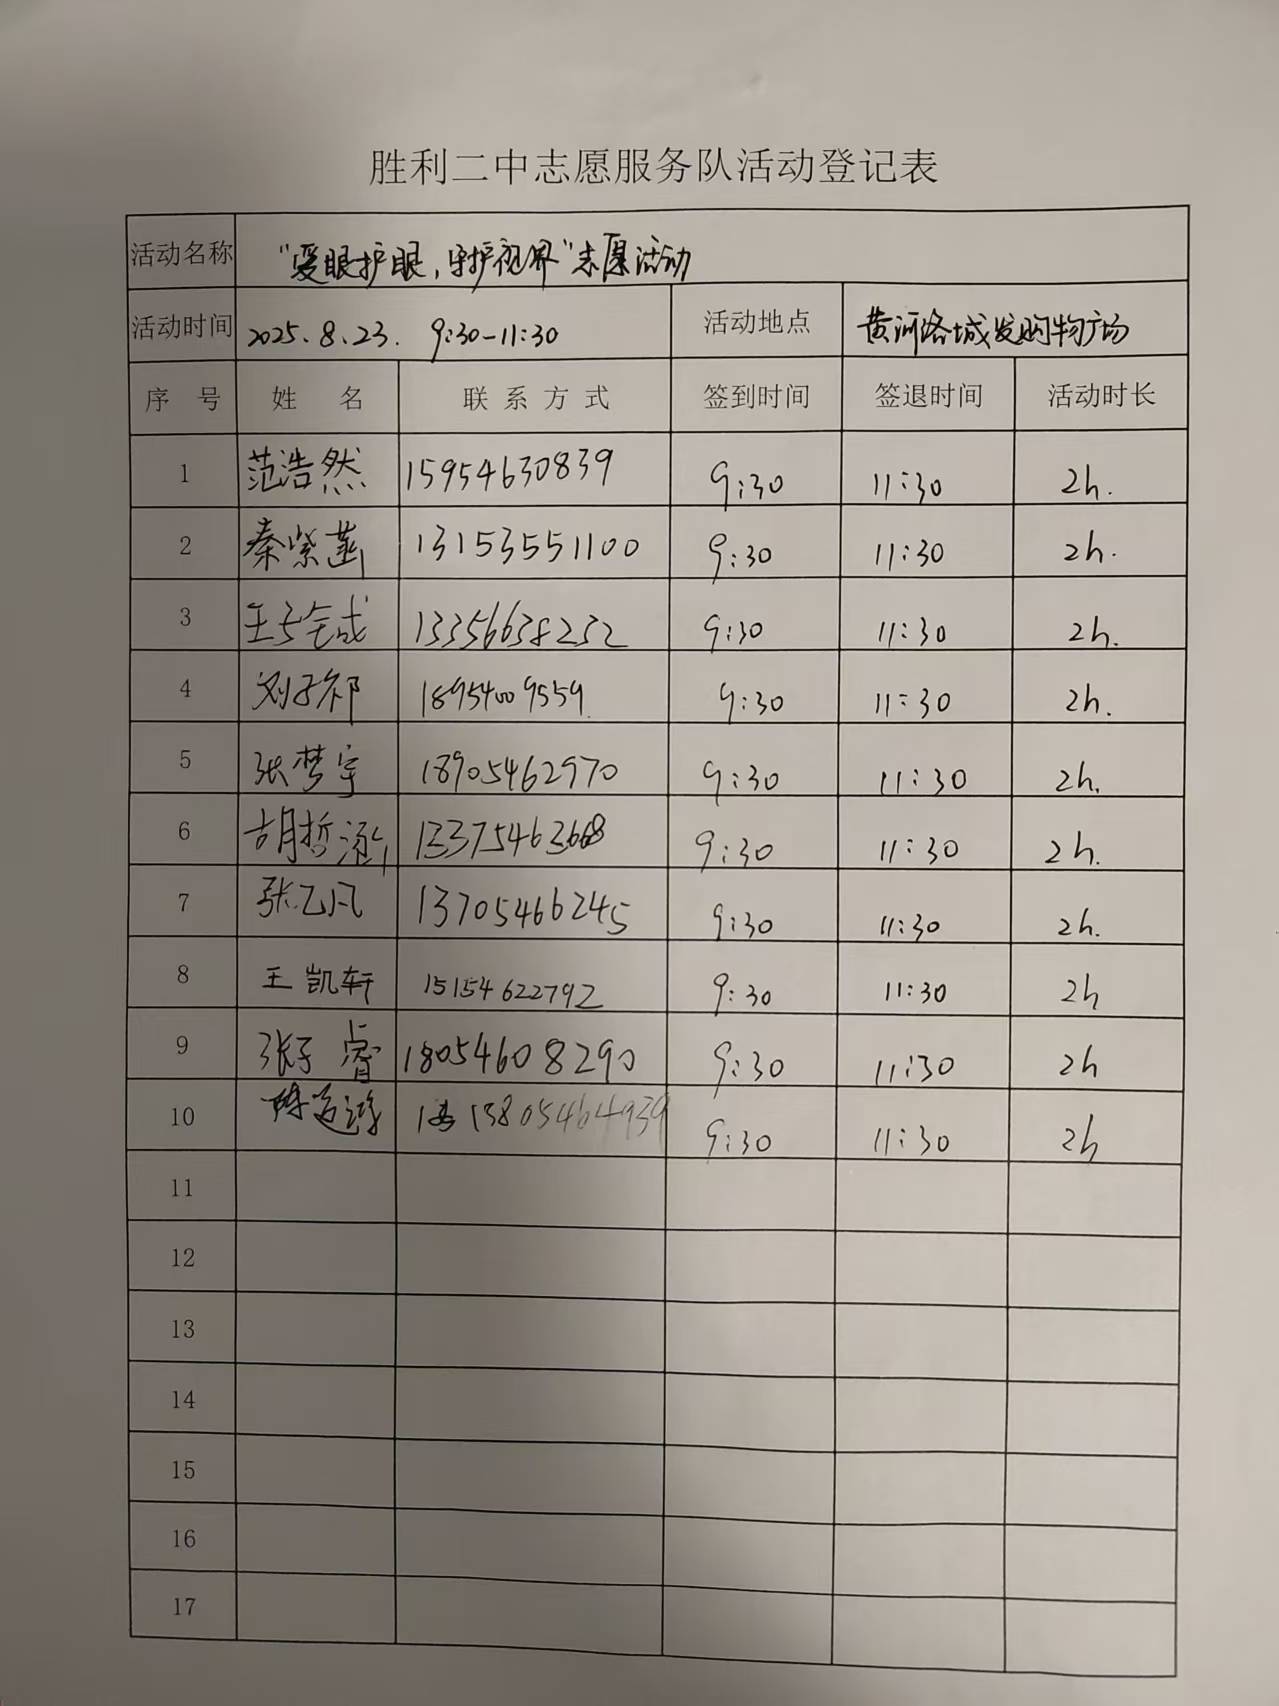 胜利二中志愿服务队活动登记表
活动名称 "爱眼护眼,守护视界"志愿活动
活动时间 2025.8.23. 9:30-11:30 活动地点 黄河洛城发购物广场
序 号 姓 名 联系方式 签到时间 签退时间 活动时长
1 范浩然 15954630839 9:30 11:30 2h.
2 秦紫菡 13153551100 9:30 11:30 2h.
3 13356638232 9:30 11:30 2h.
4 刘子祁 18954009559 9:30 11:30 2h.
5 张梦宇 18905462970 9:30 11:30 2h.
6 胡哲 9:30 11:30 2h.
7 张乙凡 13705466245 9:30 11:30 2h.
8 王凯轩 15154622792 9:30 11:30 2h
9 张子睿 18054608290 9:30 11:30 2h
10 13805464939 9:30 11:30 2h
11
12
13
14
15
16
17